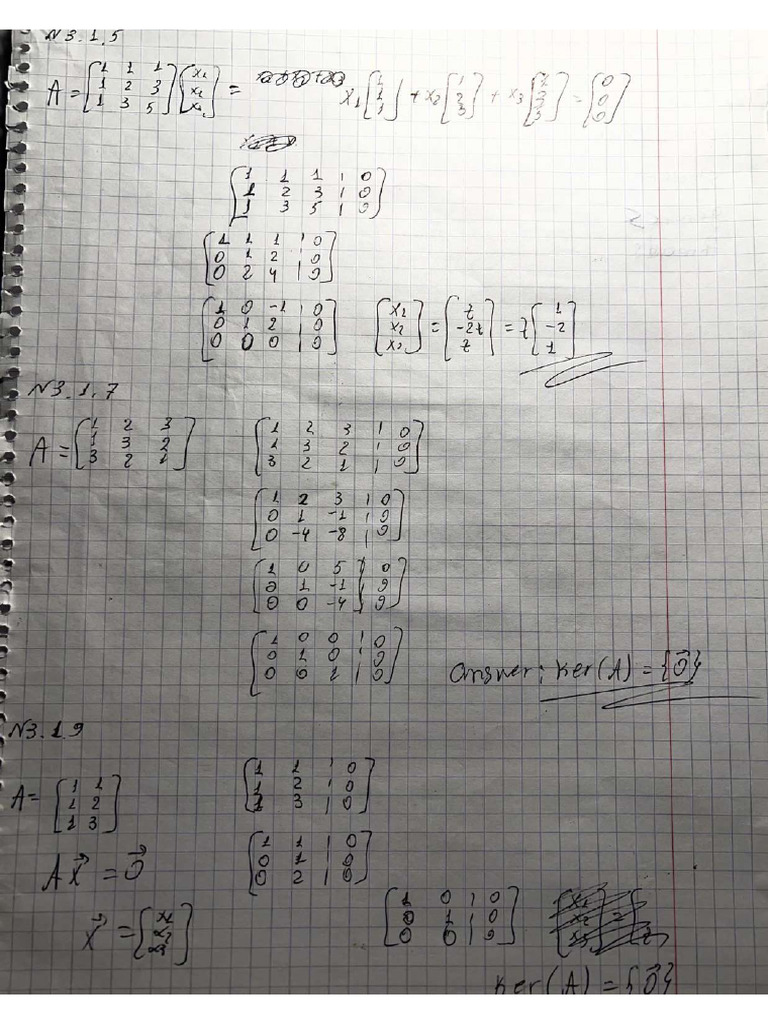 N3.1.5
A = [1 1 1; 1 2 3; 1 3 5] [x₁; x₂; x₃] = x₁ [1; 1; 1] + x₂ [1; 2; 3] + x₃ [1; 3; 5] = [0; 0; 0]
[1 1 1 | 0; 1 2 3 | 0; 1 3 5 | 0]
[1 1 1 | 0; 0 1 2 | 0; 0 2 4 | 0]
[1 0 -1 | 0; 0 1 2 | 0; 0 0 0 | 0] [x₁; x₂; x₃] = [t; -2t; t] = t [1; -2; 1]
N3.1.7
A = [1 2 3; 1 3 2; 3 2 1] [1 2 3 | 0; 1 3 2 | 0; 3 2 1 | 0]
[1 2 3 | 0; 0 1 -1 | 0; 0 -4 -8 | 0]
[1 0 5 | 0; 0 1 -1 | 0; 0 0 -4 | 0]
[1 0 0 | 0; 0 1 0 | 0; 0 0 1 | 0] Answer: ker(A) = {0⃗}
N3.1.9
A = [1 1; 1 2; 1 3] [1 1 | 0; 1 2 | 0; 1 3 | 0]
Ax⃗ = 0⃗ [1 1 | 0; 0 1 | 0; 0 2 | 0]
x⃗ = [x₁; x₂; x₃] [1 0 | 0; 0 1 | 0; 0 0 | 0]
ker(A) = {0⃗}